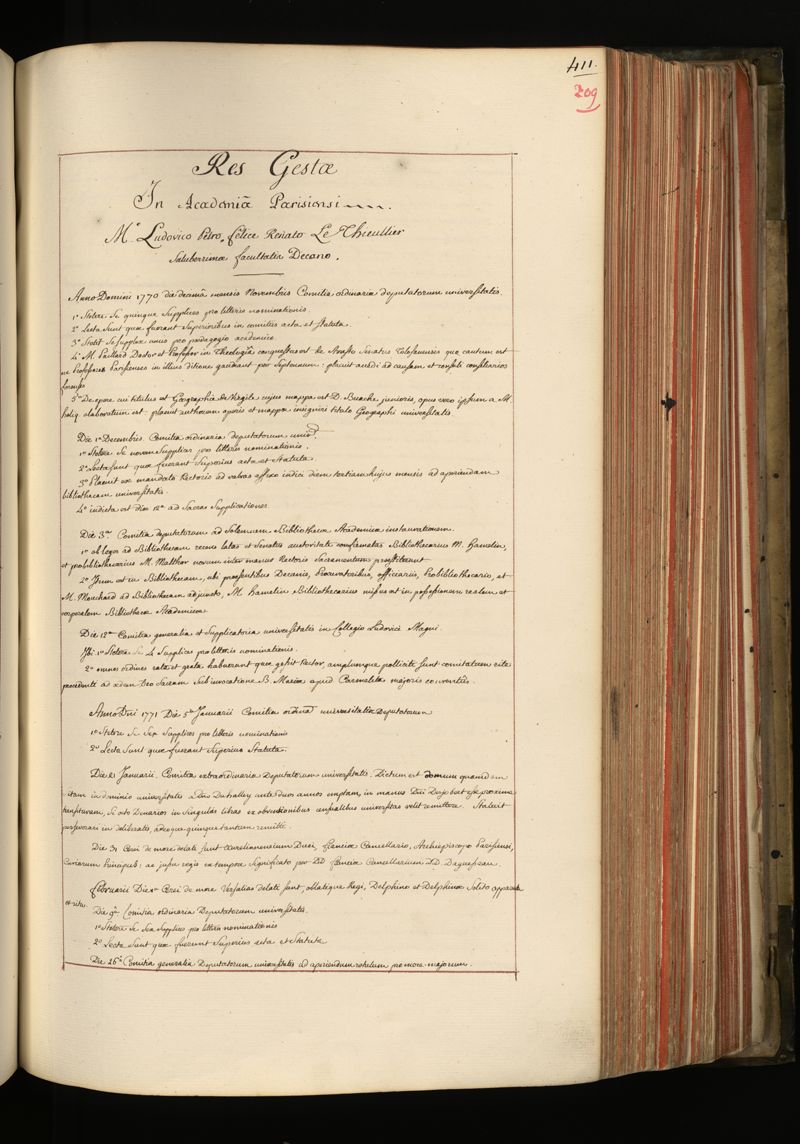 411.
209
Res Gestæ
In Academiâ Parisiensi
M.º Ludovico Petro, felice Renato Le Thieullier
Saluberrimæ facultatis Decano.
Anno Domini 1770 die decimâ mensis Novembris Comitia ordinaria deputatorum universitatis.
1º Stetere se quinque Supplices pro litteris nominationis.
2º Lecta sunt quæ fuerant Superioribus in comitiis acta et statuta.
3º Stetit se Supplex unus pro pædagogio academico
4º M. Paillard Doctor et Professor in Theologiâ conquestus est de Arresto Senatus Tolosanensis quo cautum est
ne Professores Parisienses in illius ditione gaudeant per Septennium: placuit audiri ad causam et consuli consiliarios
forenses
5º De opere cui titulus est Géographie de Virgile cujus mappa est D. Buache junioris, opus vero ipsum a M.
heliez elaboratum est placuit authorem operis et mappæ insignire titulo Geographi universitatis.
Die 1ª Decembris. Comitia ordinaria deputatorum univ.
1º Stetere se novem Supplices pro litteris nominationis.
2º Lecta sunt quæ fuerant Superius acta et Statuta.
3º Placuit ex mandato Rectoris ad valvas affixo indici diem tertiam hujus mensis ad aperiendam
bibliothecam universitatis.
4º indicta est dies 12ª ad Sacras Supplicationes.
Die 3ª. Comitia deputatorum ad Solemnem Bibliothecæ Academicæ instaurationem.
1º ob leges ad Bibliothecam recens latas et Senatus autoritate confirmatas Bibliothecarius M. Hamelin,
et probibliothecarius M. Malthor novum inter manus Rectoris Sacramentum præstiterunt
2º Itum est in Bibliothecam, ubi præsentibus Decanis, Procuratoribus, officiariis, Probibliothecario, et
M. Merchand ad Bibliothecam adjuncto, M. hamelin Bibliothecarius missus est in possessionem realem et
corporalem Bibliothecæ Academicæ.
Die 12ª Comitia generalia et Supplicatoria universitatis in Collegio Ludovici Magni.
Ibi 1º Stetere se 4 Supplices pro litteris nominationis.
2º omnes ordines rata et grata habuerunt quæ gessit Rector, amplumque polliciti sunt comitatum rite
procedenti ad ædem Deo Sacram Sub invocatione B. Mariæ apud Carmelitas majoris conventûs.
Anno Dni 1771 Die 5ª Januarii Comitia ordinª universitatis Deputatorum
1º Stetere se Sex Supplices pro litteris nominationis
2º Lecta sunt quæ fuerant Superius Statuta.
Die 21 Januarii. Comitia extraordinaria Deputatorum universitatis. Dictum est domum quamdam
sitam in dominio universitatis a Dno Dutralley ante duos annos emptam, in manus Dni Dujobert esse proxime
transituram, si octo Denarios in singulas libras ex obventionibus censualibus universitas velit remittere. Statuit
perseverari in deliberatis, adeoque quinque tantum remitti.
Die 31 Cerei de more delati sunt Aurelianensium Duci, franciæ Cancellario, Archiepiscopo Parisiensi,
Curiarum Principibus: ac jussu regis extempore significato pro DD franciæ Cancellarium D.D. Daguesseau.
februarii Die 1ª Cerei de more Versalias delati sunt, oblatique Regi, Delphino et Delphinæ Solito apparatu
et ritu.
Die 9ª Comitia ordinaria Deputatorum universitatis.
1º Stetere se Sex Supplices pro litteris nominationis
2º Lecta sunt quæ fuerunt Superius acta et Statuta
Die 26ª Comitia generalia Deputatorum universitatis ad aperiendum rotulum pro more majorum.